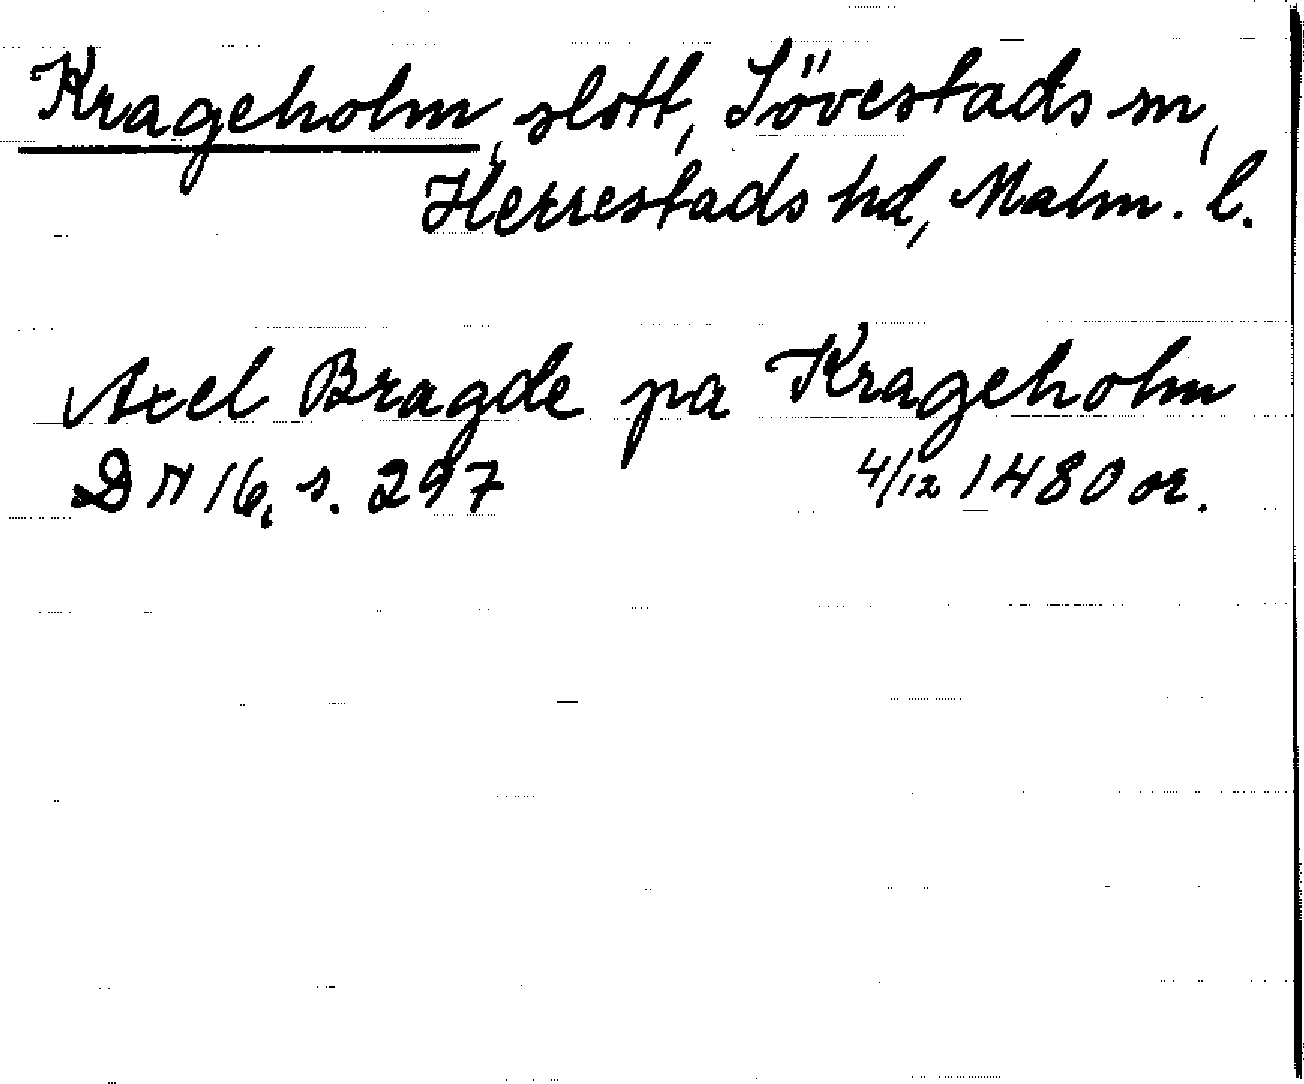 Krageholm, slott, Sövestads sn,
Herrestads hd, Malm. l.
Axel Bragde pa Krageholm
D N 16, s. 297 4/12 1480 or.